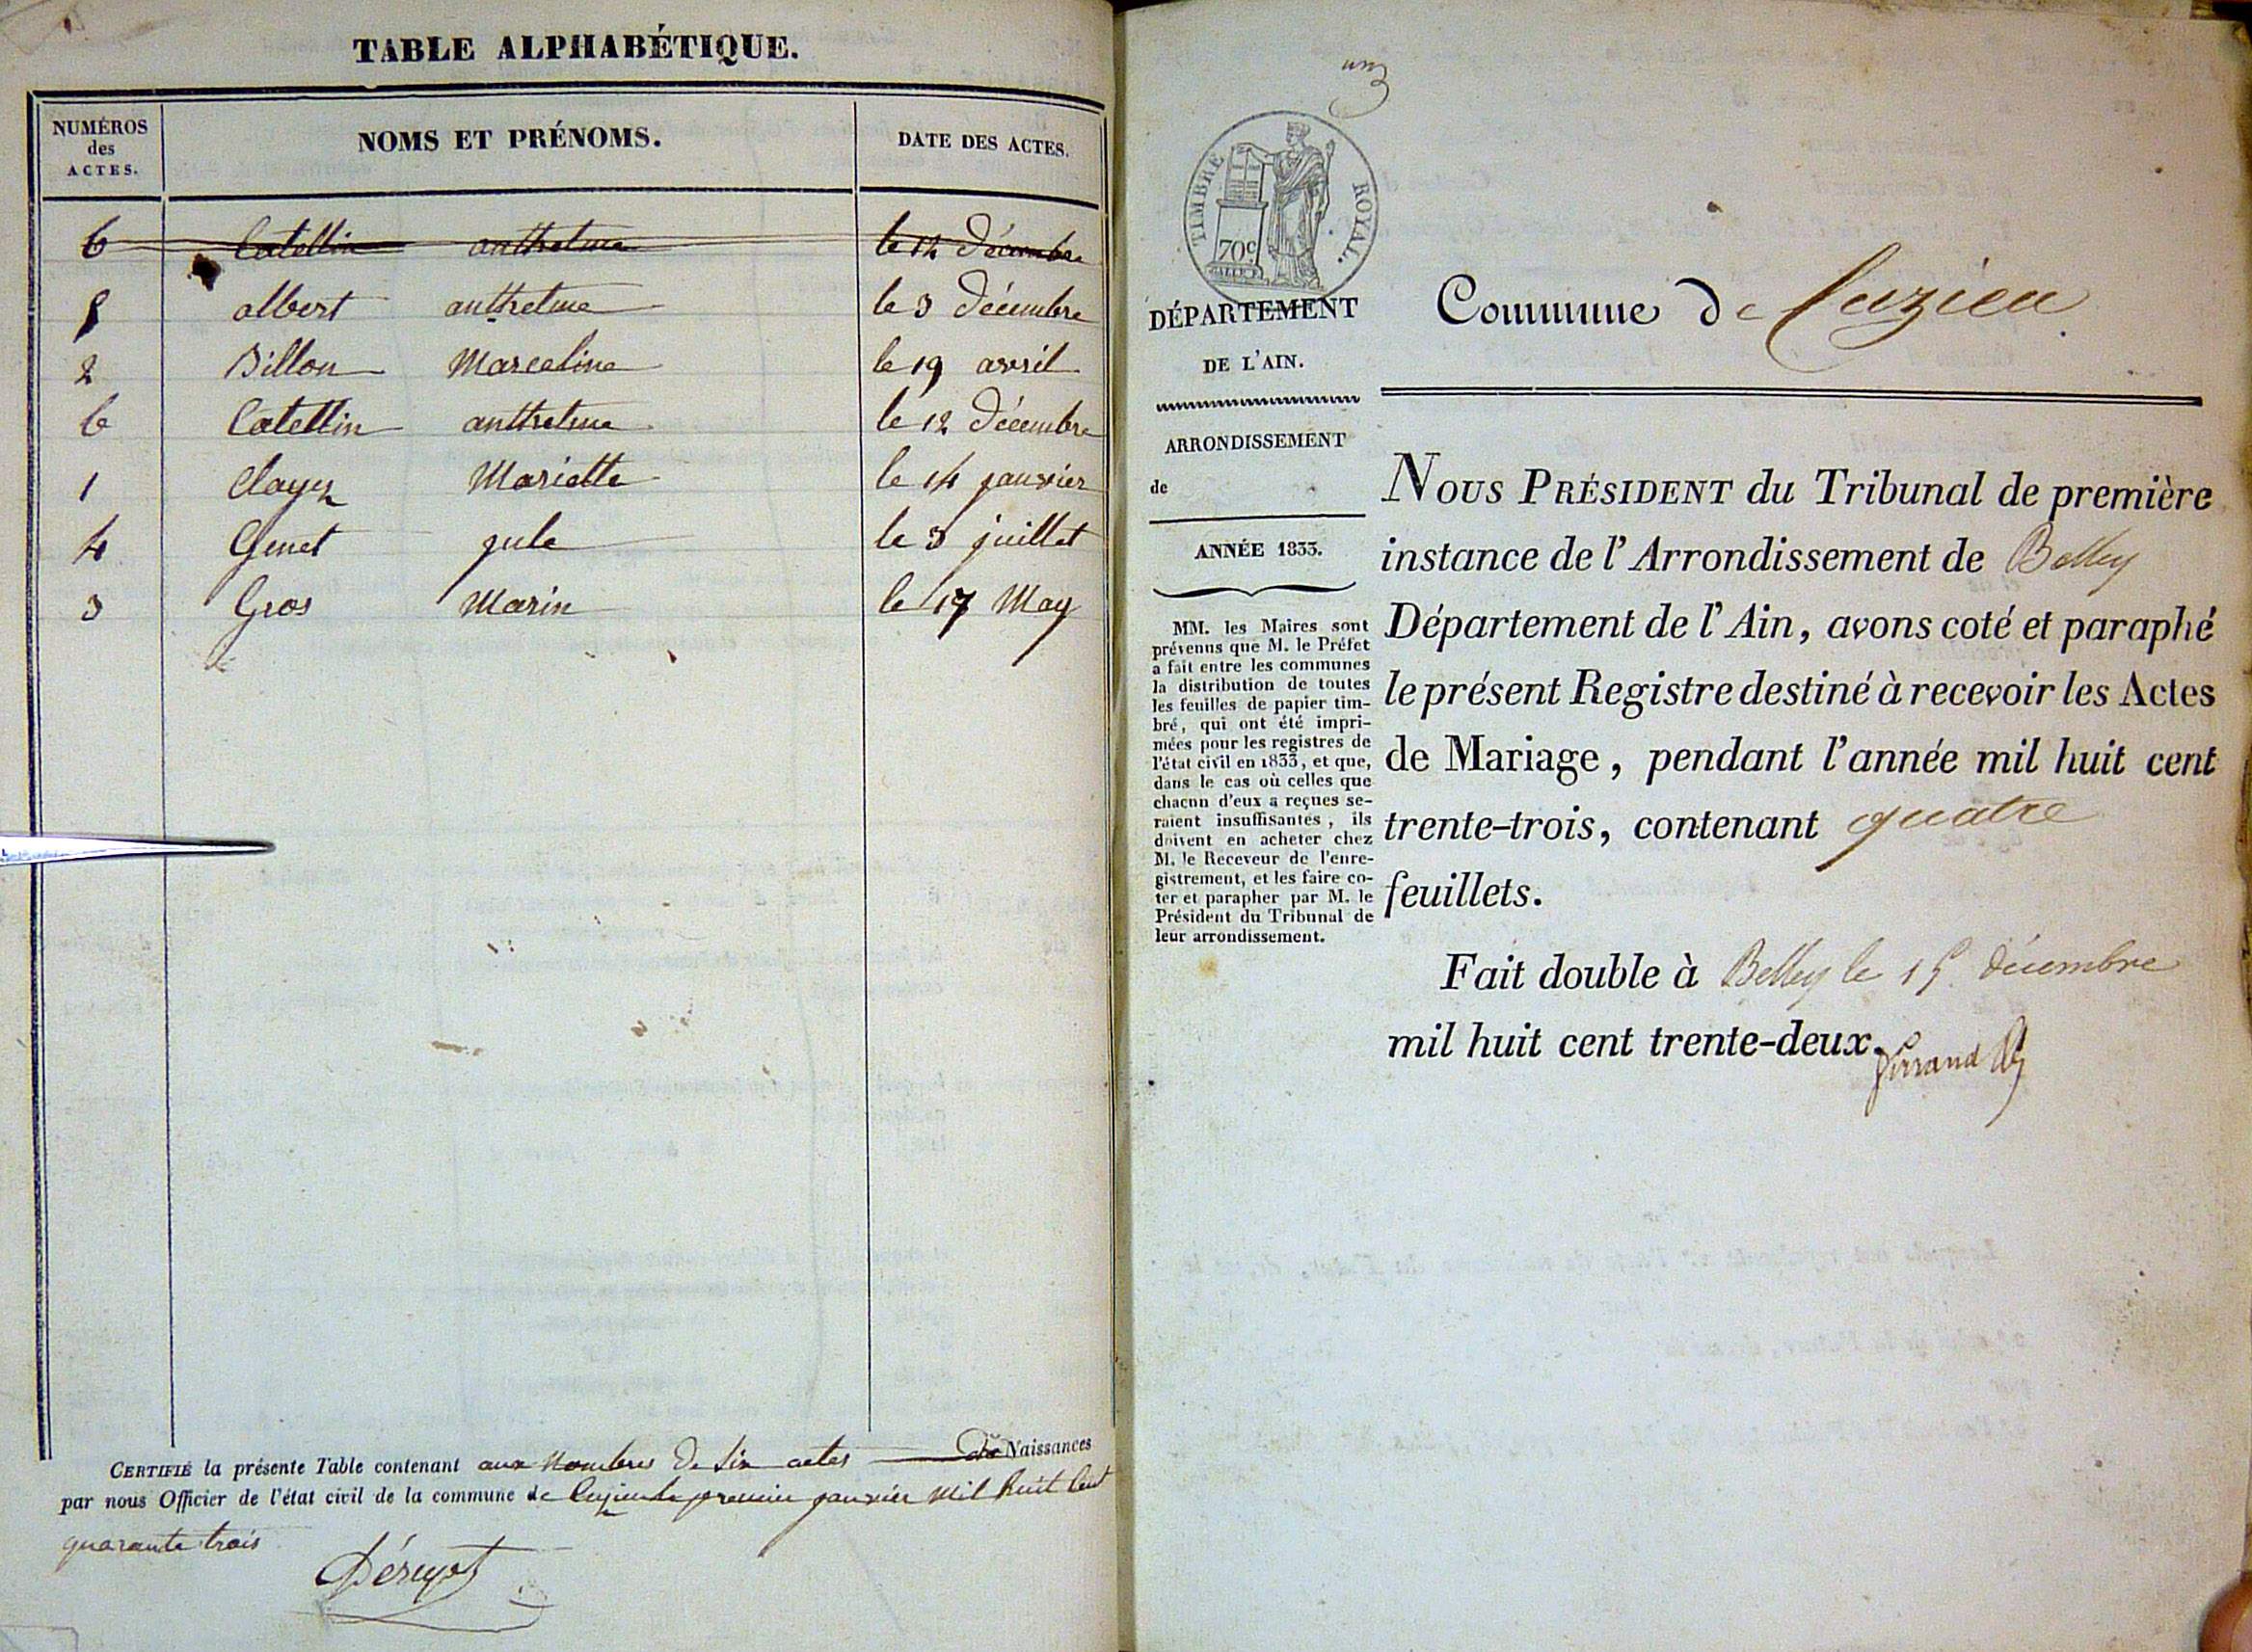 TABLE ALPHABÉTIQUE.
NUMÉROS des ACTES.
NOMS ET PRÉNOMS.
DATE DES ACTES.
6 Catettin anthelme le 12 Décembre
5 albert anthelme le 3 Décembre
2 Billon Marceline le 19 avril
6 Catettin anthelme le 12 Décembre
1 Clayez Mariette le 14 janvier
4 Genet jule le 3 juillet
3 Gros Marin le 17 May
CERTIFIÉ la présente Table contenant aux Nombres De Six actes De Naissances
par nous Officier de l'état civil de la commune de Cuzieu le premier janvier Mil huit Cent
quarante trois
un
TIMBRE ROYAL.
70c
DÉPARTEMENT
DE L'AIN.
ARRONDISSEMENT
de
ANNÉE 1833.
MM. les Maires sont
prévenus que M. le Préfet
a fait entre les communes
la distribution de toutes
les feuilles de papier tim-
bré, qui ont été impri-
mées pour les registres de
l'état civil en 1833, et que,
dans le cas où celles que
chacun d'eux a reçues se-
raient insuffisantes, ils
doivent en acheter chez
M. le Receveur de l'enre-
gistrement, et les faire co-
ter et parapher par M. le
Président du Tribunal de
leur arrondissement.
Commune de Cuzieu
NOUS PRÉSIDENT du Tribunal de première
instance de l'Arrondissement de Belley
Département de l'Ain, avons coté et paraphé
le présent Registre destiné à recevoir les Actes
de Mariage, pendant l'année mil huit cent
trente-trois, contenant quatre
feuillets.
Fait double à Belley le 15 décembre
mil huit cent trente-deux.